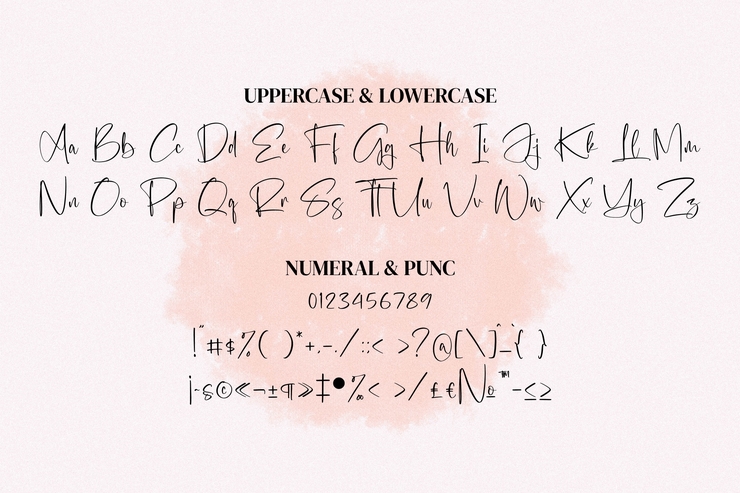 UPPERCASE & LOWERCASE
Aa Bb Cc Dd Ee Ff Gg Hh Ii Jj Kk Ll Mm
Nn Oo Pp Qq Rr Ss Tt Uu Vv Ww Xx Yy Zz
NUMERAL & PUNC
0123456789
!"#$%( )*+,-./:;< >?@[\]^_`{ }
¡~§©«¬±¶»‡●‰< >/£€№™−≤≥